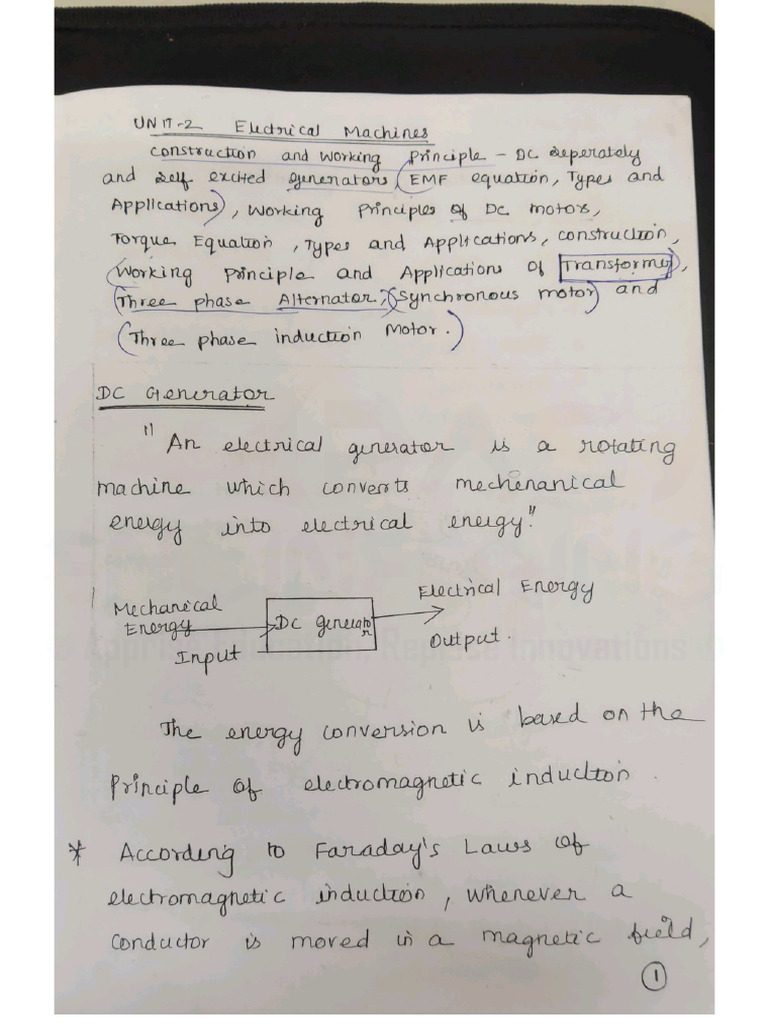 UNIT-2 Electrical Machines
Construction and Working Principle - DC Seperately
and Self excited Generators, (EMF equation, Types and
Applications), Working Principles of DC motors,
Torque Equation, Types and Applications, construction,
(Working Principle and Applications of Transformer),
(Three phase Alternator,) (Synchronous motor) and
(Three phase induction Motor.)
DC Generator
"An electrical generator is a rotating
machine which converts mechenanical
energy into electrical energy."
Mechanical Energy Input
DC generator
Electrical Energy Output.
The energy conversion is based on the
Principle of electromagnetic induction.
* According to Faraday's Laws of
electromagnetic induction, whenever a
conductor is moved in a magnetic field,
1